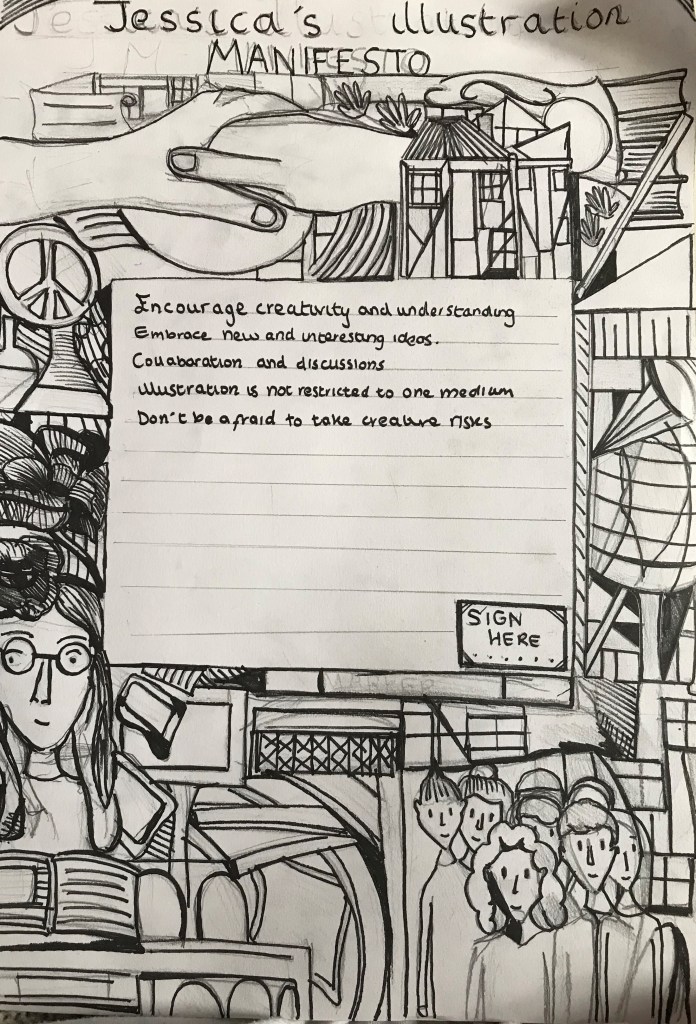 Jessica's illustration
MANIFESTO
Encourage creativity and understanding
Embrace new and interesting ideas.
Collaboration and discussions
illustration is not restricted to one medium
Don't be afraid to take creative risks
SIGN
HERE